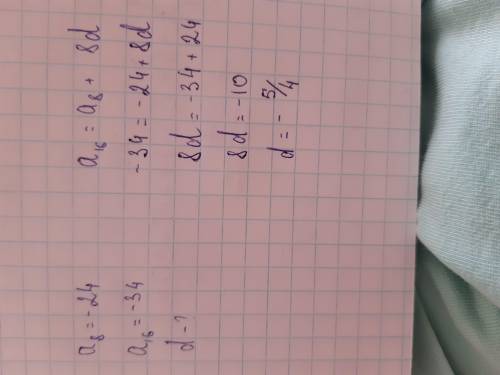 a₈ = -24
a₁₆ = -34
d - ?
a₁₆ = a₈ + 8d
-34 = -24 + 8d
8d = -34 + 24
8d = -10
d = - 5/4